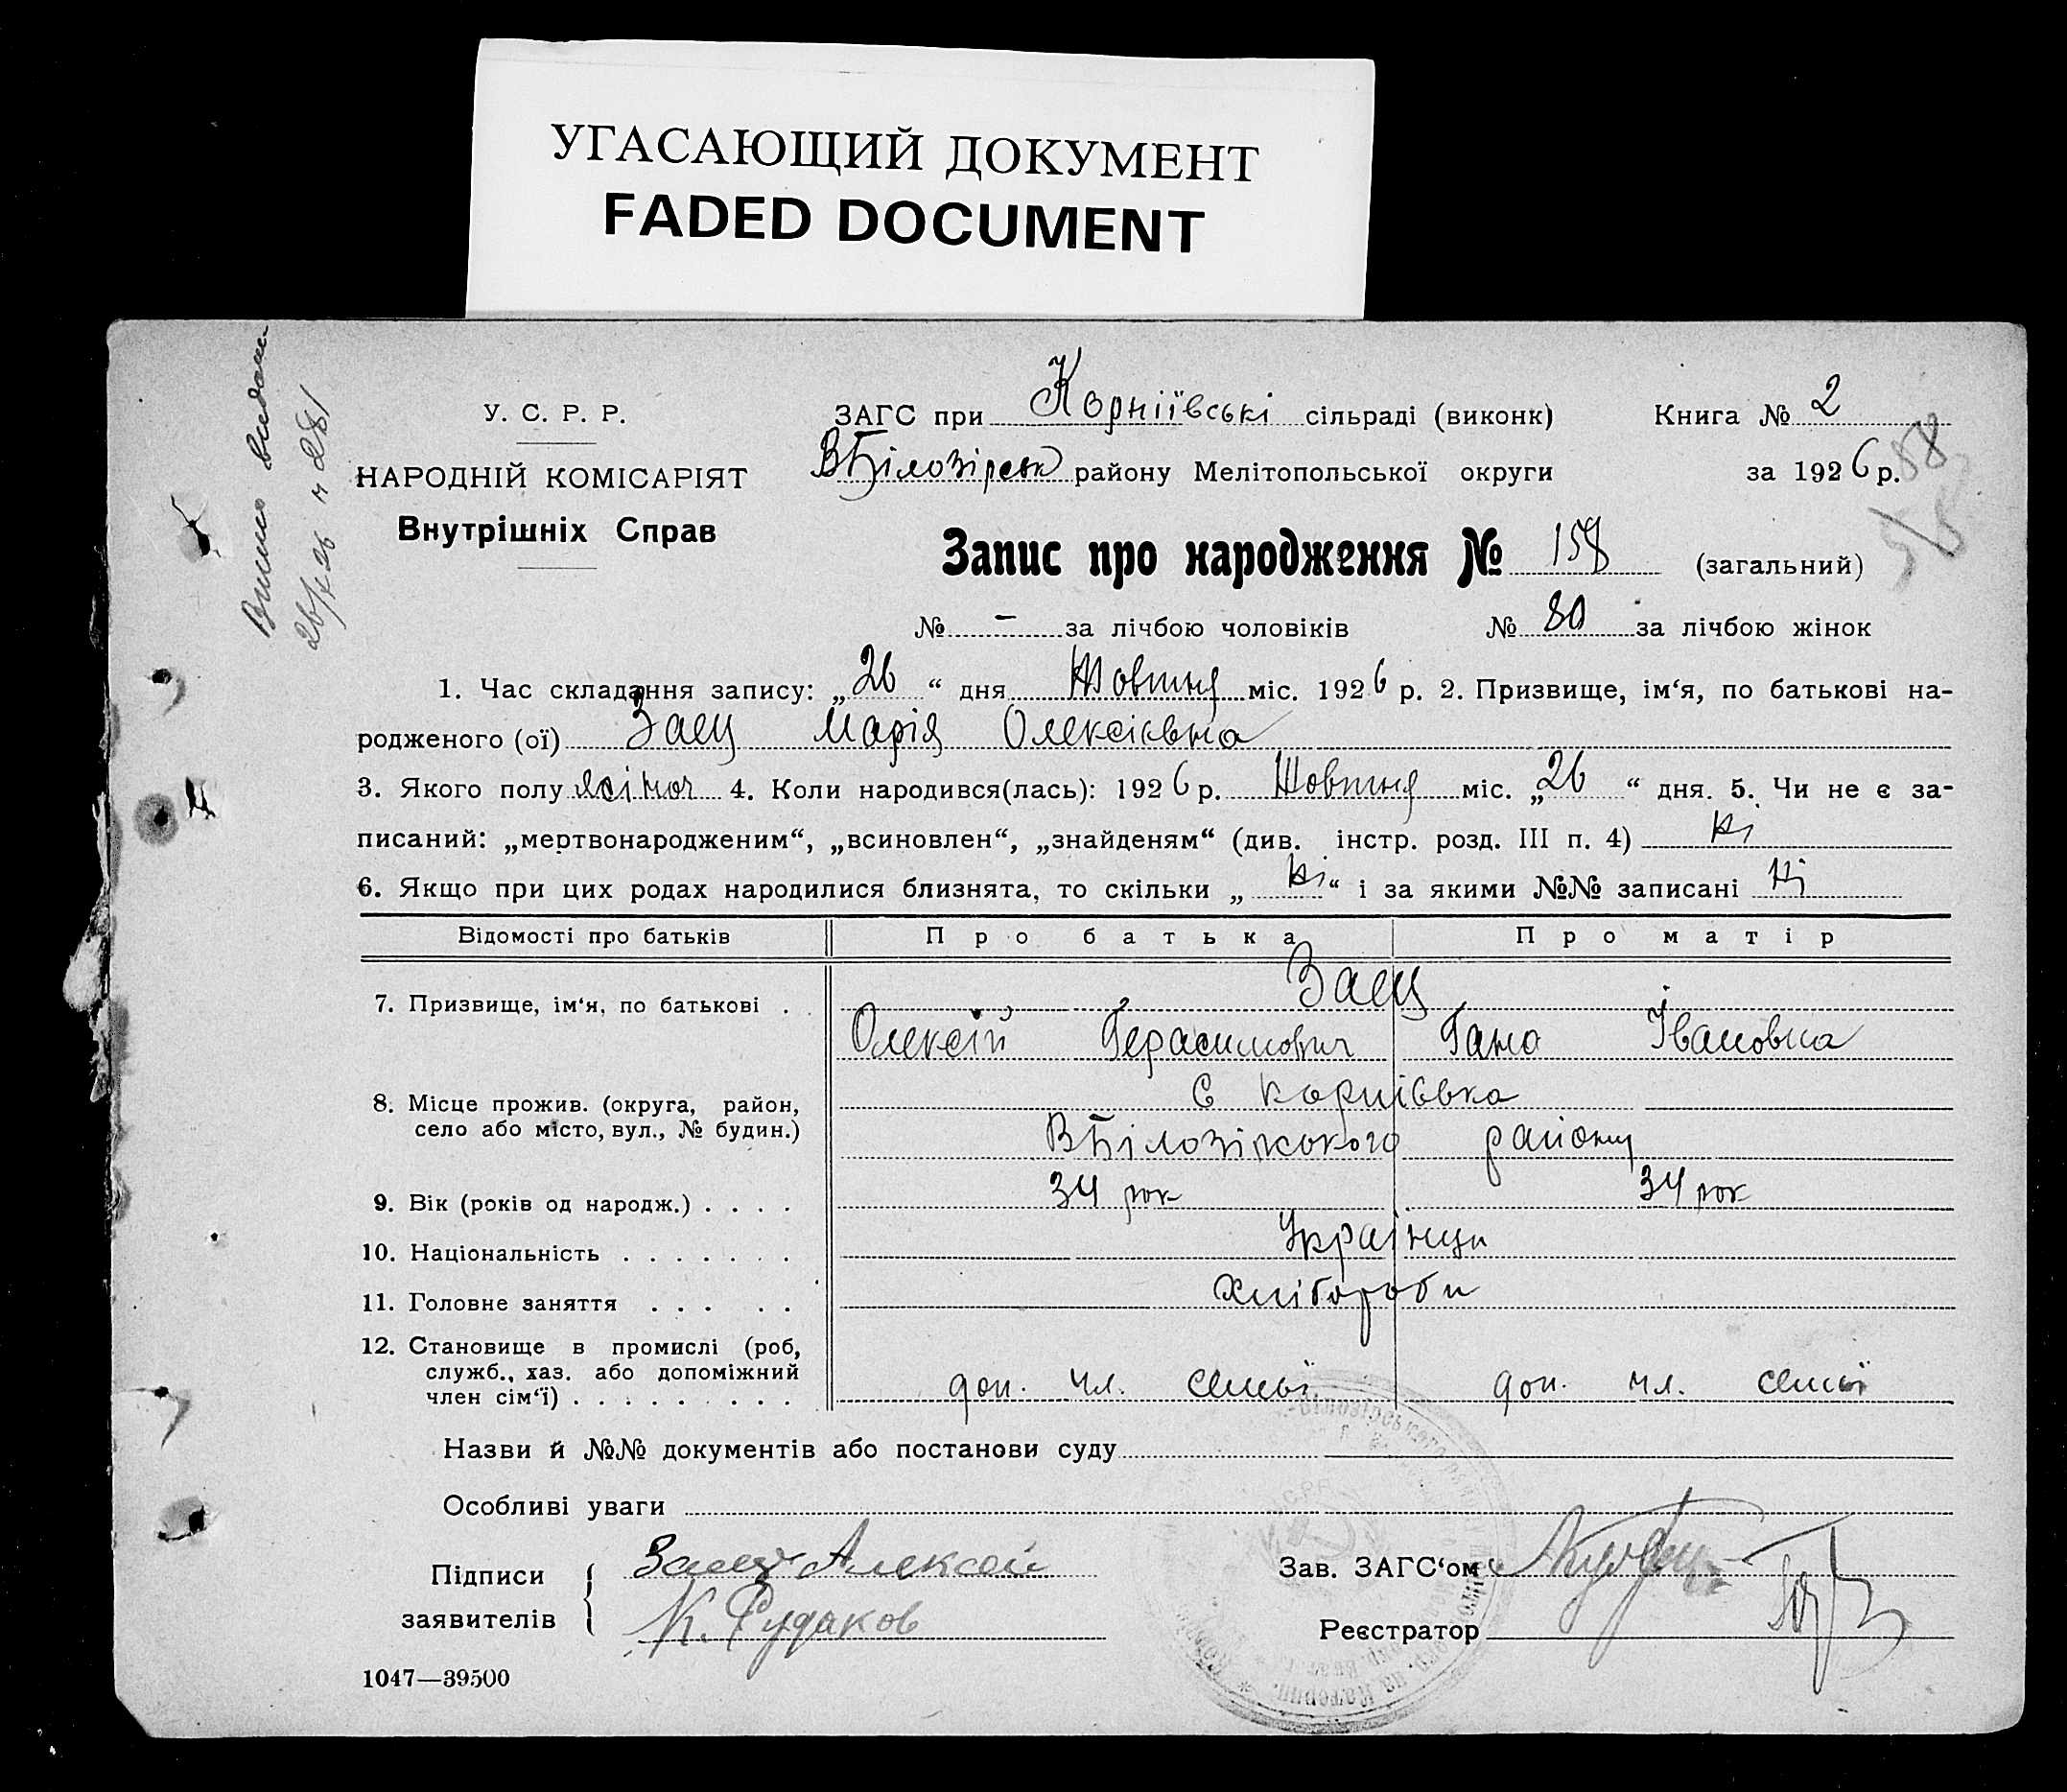 УГАСАЮЩИЙ ДОКУМЕНТ
FADED DOCUMENT
Випис видан
26/X 26 ч 281
У. С. Р. Р.
НАРОДНІЙ КОМІСАРІЯТ
Внутрішніх Справ
ЗАГС при Корніївські сільраді (виконк) Книга № 2
ВБілозірськ району Мелітопольської округи за 1926 р.
58
Запис про народження № 158 (загальний)
№ – за лічбою чоловіків № 80 за лічбою жінок
1. Час складання запису: „26“ дня Жовтня міс. 1926 р. 2. Призвище, ім‘я, по батькові на-
родженого (ої) Заец Марія Олексієвна
3. Якого полу жіноч 4. Коли народився(лась): 1926 р. Жовтня міс. „26“ дня. 5. Чи не є за-
писаний: „мертвонародженим“, „всиновлен“, „знайденям“ (див. інстр. розд. III п. 4) ні
6. Якщо при цих родах народилися близнята, то скільки „ні“ і за якими №№ записані ні
Відомості про батьків Про батька Про матір
7. Призвище, ім‘я, по батькові . Заец
Олексій Герасимович Гана Івановна
8. Місце прожив. (округа, район, С Корніївка
село або місто, вул., № будин.) ВБілозірського району
9. Вік (років од народж.) . . . . 34 рок 34 рок
10. Національність . . . . . . . Українци
11. Головне заняття . . . . . Хлібороби
12. Становище в промислі (роб,
служб., хаз. або допоміжний
член сім‘ї) . . . . . . . . . доп. чл. семьї доп. чл. семьї
Назви й №№ документів або постанови суду
Особливі уваги
Підписи Заец Алексей Зав. ЗАГС‘ом
заявителів К. Рудаков Реєстратор
1047—39500